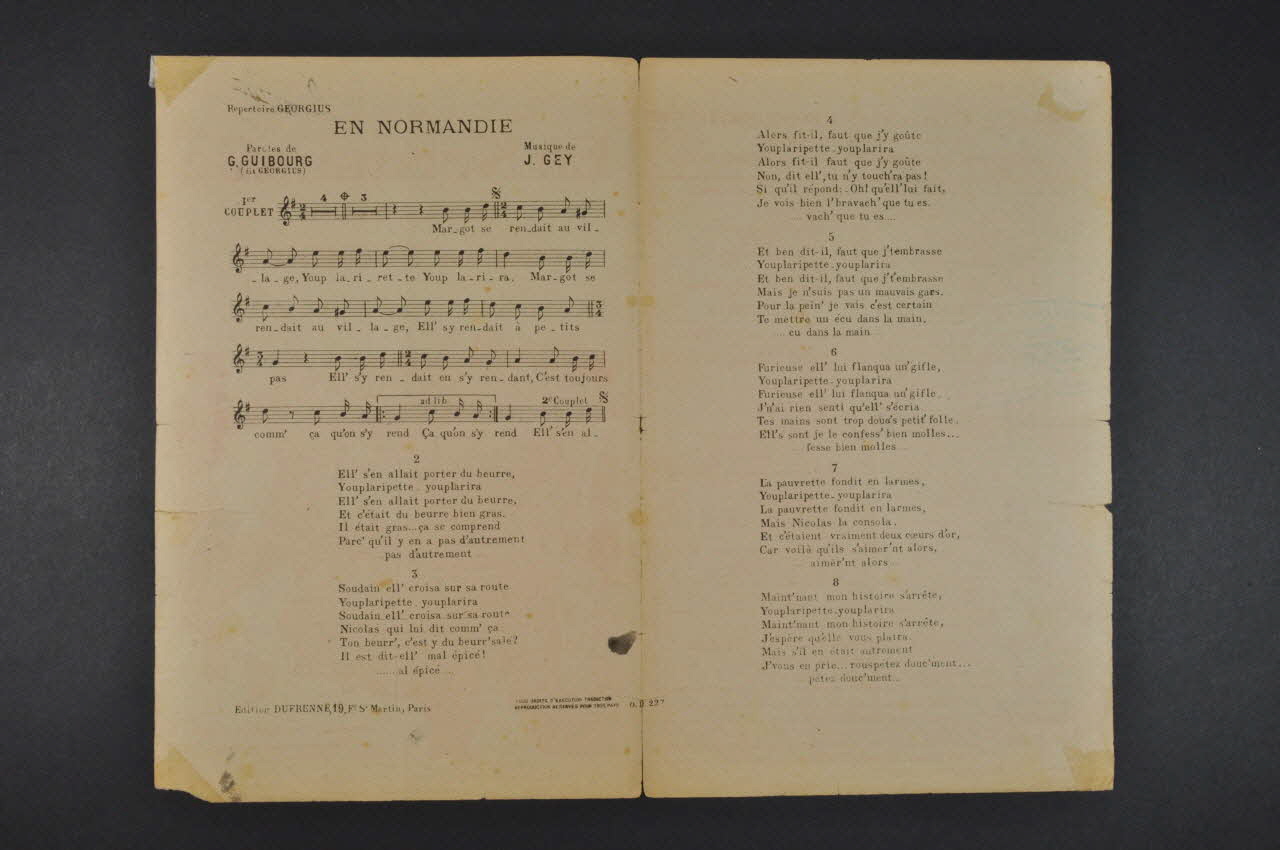 Repertoire GEORGIUS
EN NORMANDIE
Paroles de
G. GUIBOURG
(dit GEORGIUS)
Musique de
J. GEY
1er
COUPLET
4 3
Mar_got se ren_dait au vil_
_la_ge, Youp la_ri_ret_te Youp la_ri_ra. Mar_got se
ren_dait au vil_la_ge, Ell' s'y ren_dait à pe_tits
pas Ell' s'y ren_dait en s'y ren_dant, C'est toujours
ad lib. 2e Couplet
comm' ça qu'on s'y rend Ça qu'on s'y rend Ell' s'en al_
2
Ell' s'en allait porter du beurre,
Youplaripette_youplarira
Ell' s'en allait porter du beurre,
Et c'était du beurre bien gras.
Il était gras...ça se comprend
Parc' qu'il y en a pas d'autrement
...pas d'autrement...
3
Soudain ell' croisa sur sa route
Youplaripette_youplarira
Soudain ell' croisa sur sa route
Nicolas qui lui dit comm' ça
Ton beurr', c'est y du beurr' salé?
Il est dit-ell' mal épicé!
......al épicé...
Edition DUFRENNE, 19, Fg St Martin, Paris
TOUS DROITS D'EXECUTION TRADUCTION
REPRODUCTION RESERVES POUR TOUS PAYS
O. D. 227
4
Alors fit-il, faut que j'y goûte
Youplaripette_youplarira
Alors fit-il faut que j'y goûte
Non, dit ell', tu n'y touch'ra pas!
Si qu'il répond:_Oh! qu'ell' lui fait,
Je vois bien l'bravach' que tu es.
....vach' que tu es....
5
Et ben dit-il, faut que j't'embrasse
Youplaripette_youplarira
Et ben dit-il, faut que j't'embrasse
Mais je n'suis pas un mauvais gars.
Pour la pein' je vais c'est certain
Te mettre un écu dans la main,
...cu dans la main...
6
Furieuse ell' lui flanqua un' gifle,
Youplaripette_youplarira
Furieuse ell' lui flanqua un' gifle,
J'n'ai rien senti qu'ell' s'écria.
Tes mains sont trop douc's petit' folle,
Ell's sont je le confess' bien molles...
...fesse bien molles...
7
La pauvrette fondit en larmes,
Youplaripette_youplarira
La pauvrette fondit en larmes,
Mais Nicolas la consola.
Et c'étaient vraiment deux cœurs d'or,
Car voilà qu'ils s'aimèr'nt alors,
...aimèr'nt alors...
8
Maint'nant mon histoire s'arrête,
Youplaripette_youplarira
Maint'nant mon histoire s'arrête,
J'espère qu'elle vous plaira.
Mais s'il en était autrement
J'vous en prie...rouspetez douc'ment...
...petez douc'ment...